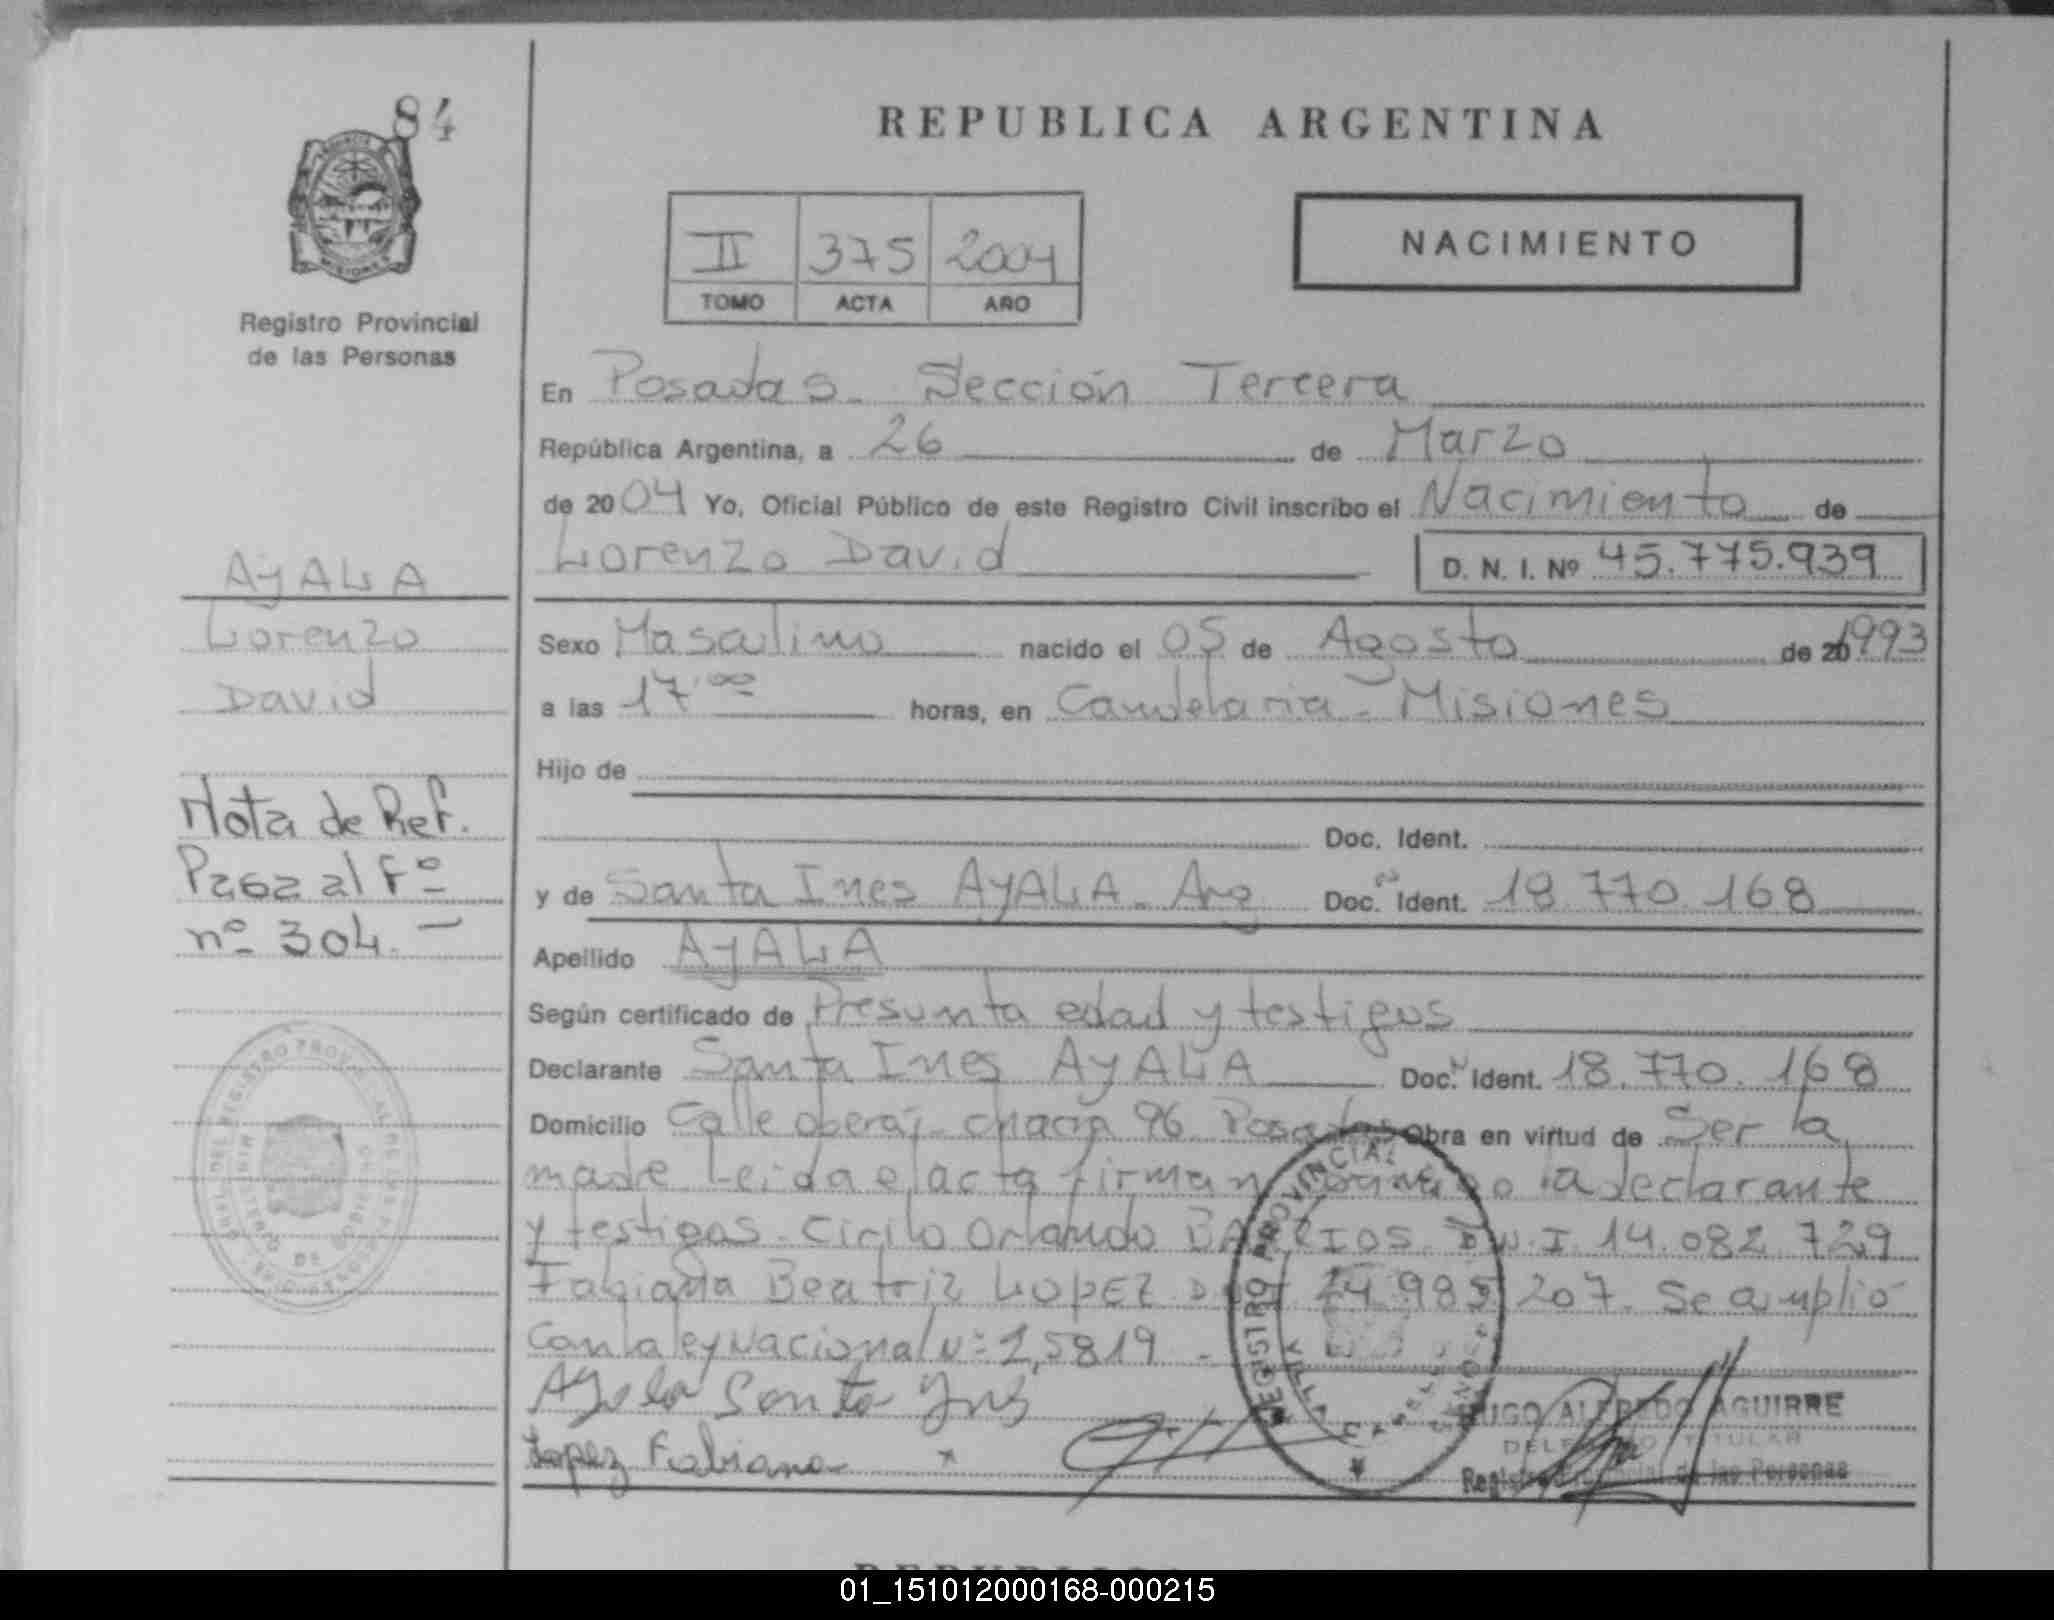 84
REPUBLICA ARGENTINA
II 375 2004
TOMO ACTA AÑO
NACIMIENTO
MISIONES
Registro Provincial
de las Personas
En Posadas - Sección Tercera
República Argentina, a 26 de Marzo
de 2004 Yo, Oficial Público de este Registro Civil inscribo el Nacimiento de
Lorenzo David D. N. I. Nº 45.775.939
AYALA
Lorenzo
David
Sexo Masculino nacido el 05 de Agosto de 20 1993
a las 17:00 horas, en Candelaria - Misiones
Hijo de
Doc. Ident.
y de Santa Ines AYALA - Arg Doc. Ident. 18.770.168
Nota de Ref.
Pasa al Fº
nº 304.-
Apellido AYALA
Según certificado de Presunta edad y testigos
Declarante Santa Ines AYALA Doc. Ident. 18.770.168
Domicilio Calle oberá - chacra 96 Posadas Obra en virtud de Ser la
madre Leida el acta firman conmigo la declarante
y testigos - Cirilo Orlando BARRIOS D.N.I. 14.082.729
Fabiana Beatriz LOPEZ 24.985.207. Se amplió
Con la ley Nacional Nº 25819 -
Ayala Santa Ines
Lopez Fabiana
REGISTRO PROVINCIAL
HUGO ALFREDO AGUIRRE
DELEGADO TITULAR
Registro Provincial de las Personas
01_151012000168-000215